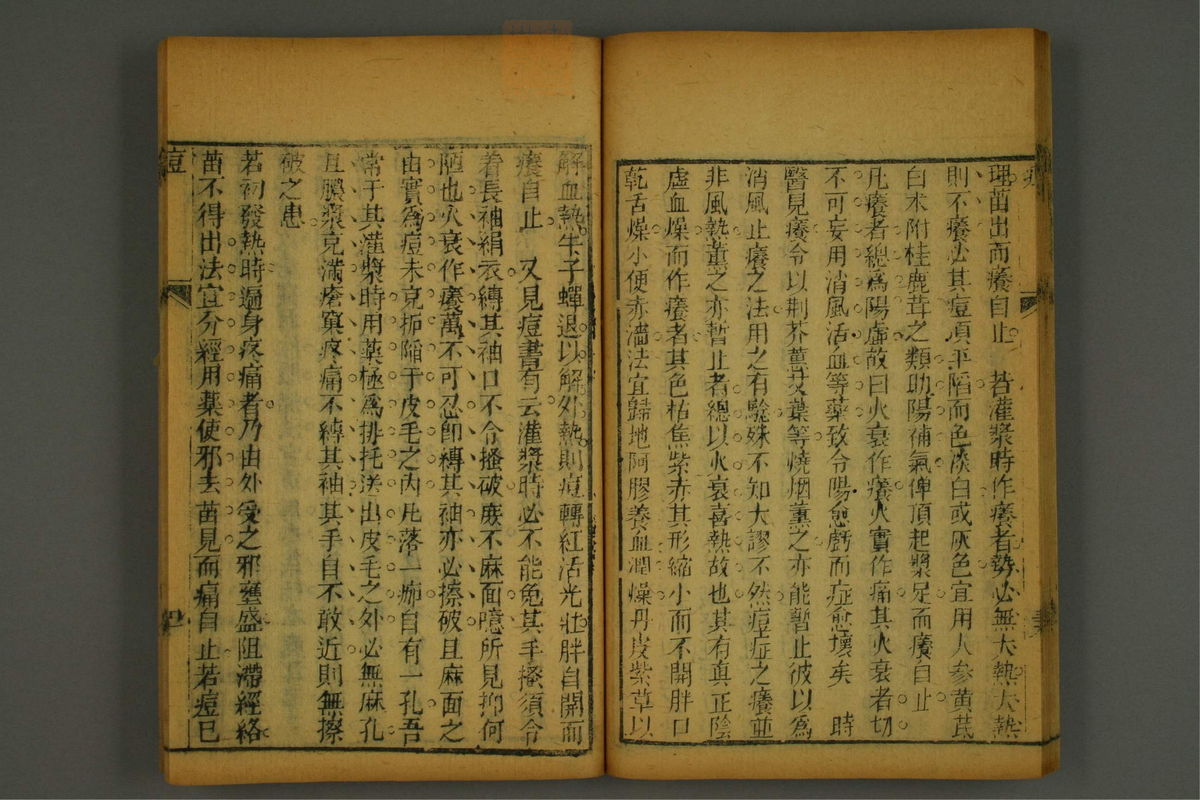 理苗出而癢自止　若灌漿時作癢者勢必無大熱大熱
則不癢必其痘頂平陷而色淡白或灰色宜用人參黄芪
白朮附桂鹿茸之類助陽補氣俾頂起漿足而癢自止
凡癢者總爲陽虛故曰火衰作癢火實作痛其火衰者切
不可妄用消風活血等藥致令陽愈虧而症愈壞矣　時
醫見癢令以荆芥蒼艾葉等燒烟薰之亦能暫止彼以爲
消風止癢之法用之有驗殊不知大謬不然痘症之癢並
非風熱薰之亦暫止者總以火衰喜熱故也其有真正陰
虛血燥而作癢者其色枯焦紫赤其形縮小而不開胖口
乾舌燥小便赤濇法宜歸地阿膠養血潤燥丹皮紫草以
解血熱牛子蟬退以解外熱則痘轉紅活光壯胖自開而
癢自止　又見痘書有云灌漿時必不能免其手搔須令
着長袖絹衣縛其袖口不令搔破庶不麻面噫所見抑何
陋也火衰作癢萬不可忍卽縛其袖亦必擦破且麻面之
由實為痘未克拆陷于皮毛之内凡落一痂自有一孔吾
常于其灌漿時用藥極爲排托送出皮毛之外必無麻孔
且膿漿克滿瘡窠疼痛不縛其袖其手自不敢近則無擦
破之患
若初發熱時遍身疼痛者乃由外受之邪壅盛阻滯經絡
苗不得出法宜分經用藥使邪去苗見而痛自止若痘已
痘